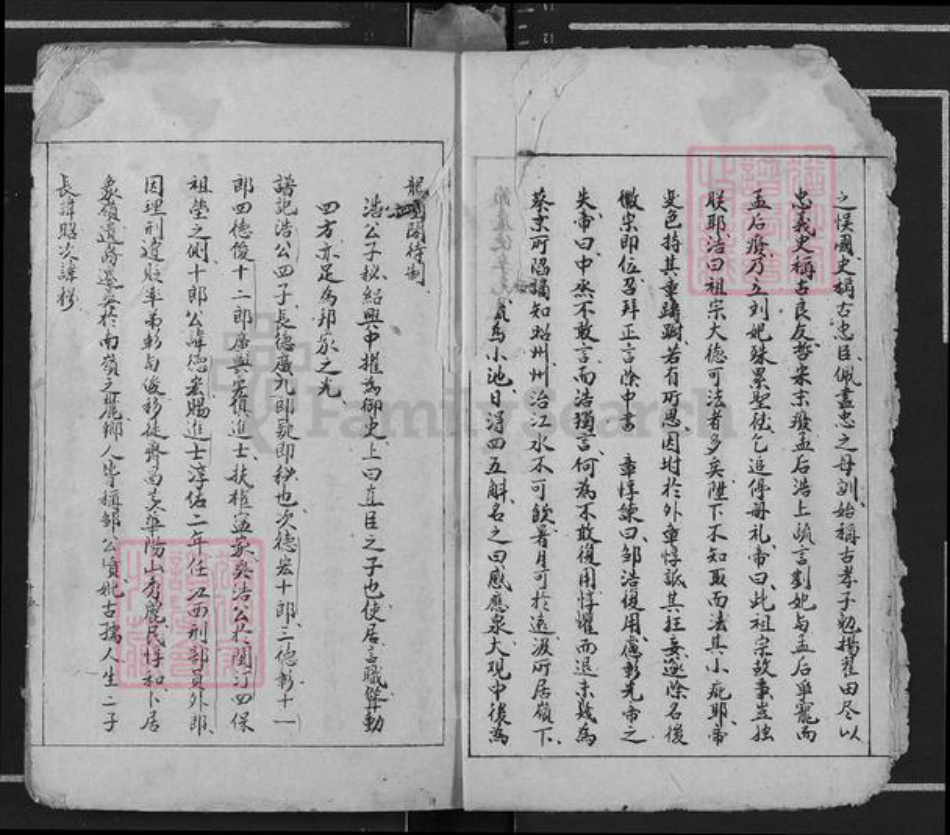 之悮國史稱古忠臣佩盡忠之母訓始稱古孝子勉揚翟田尽以
忠義史稱古良友哲宋宗癈孟后浩上疏言劉妃与孟后爭寵而
孟后癈乃立刘妃殊累聖德乞追停冊礼帝曰此祖宗故事豈独
朕耶浩曰祖宗大德可法者多矣陛下不知取而法其小疵耶帝
变色持其章躊蹰若有所思因坿於外章惇詆其狂妄遂除名後
徽宗即位召拜正言除中書 章惇諫曰邹浩復用慮彰先帝之
失帝曰中丞不敢言而浩獨言何為不敢復用惇懼而退未幾為
蔡京所陷謫知昭州州治江水不可飲暑月可於遠汲所居嶺下
為小池日淂四五斛名之曰感應泉大观中復為
龍圖閣待制
浩公子秘紹興中擢為御史上曰直臣之子也使居言職聳動
四方亦足為邦家之光
譜記浩公四子長德廣九郎疑即秘也次德宏十郎三德彰十一
郎四德俊十二郎廣與宏俱進士扶柩寔家奂浩公於閩汀四保
祖塋之側十郎公諱德宏賜進士淳佑二年任江西刑部員外郎
因理刑違貶率弟彰与俊移徙齊昌見華陽山秀麗民惇和卜居
象嶺遺芳還奂於南嶺之麓鄉人皆稱邹公墳妣古孺人生二子
長諱照次諱彬